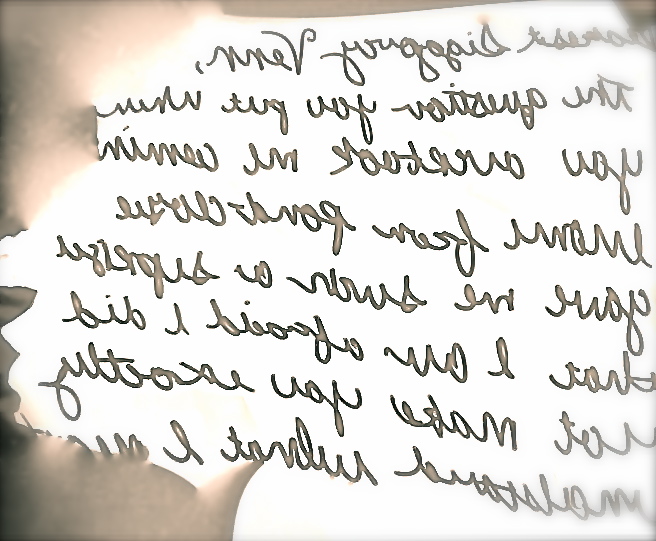 Dearest Diggory Venn,
The question you put when
you overtook me comin
home from Pond-close
gave me such a suprise
that I am afraid I did
not make you exactly
what I mean